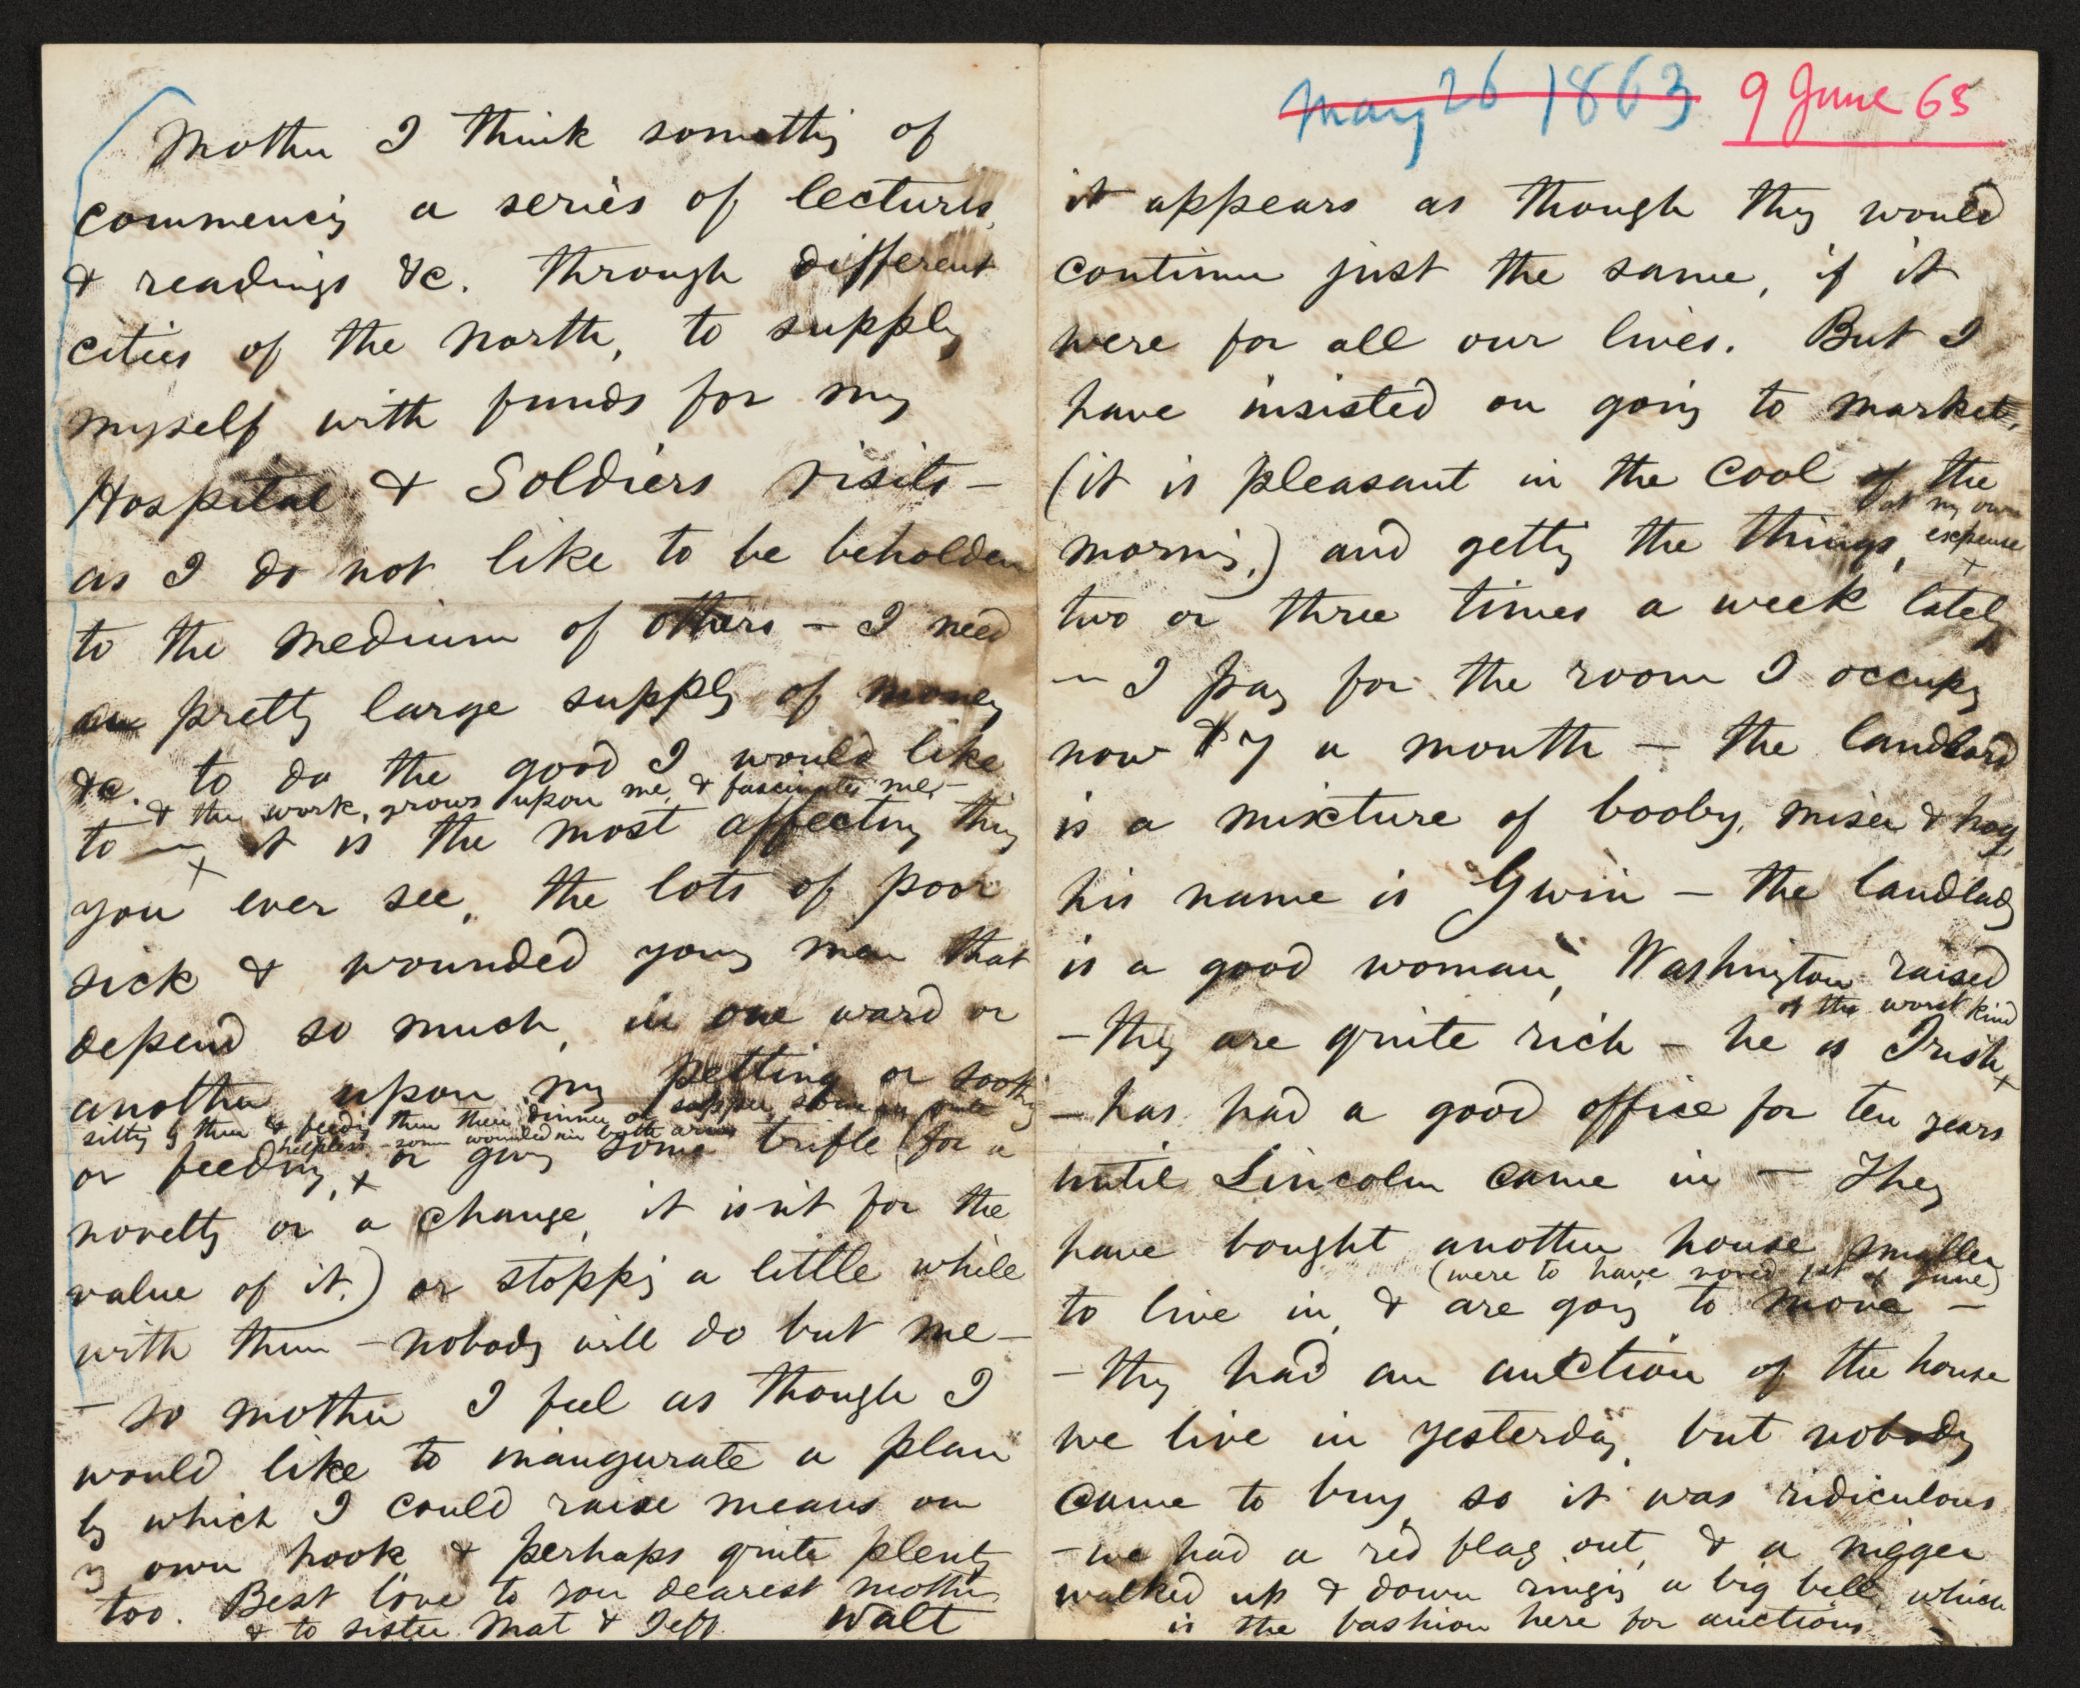 Mother I think something of
commencing a series of lectures
& readings &c. through different
cities of the north, to supply
myself with funds for my
Hospital & Soldiers visits —
as I do not like to be beholden
to the medium of others — I need
a pretty large supply of money
&c. to do the good I would like
& the work grows upon me, & fascinates me —
to — it is the most affecting thing
you ever see, the lots of poor
sick & wounded young men that
depend so much, in one ward or
another upon my petting or soothing
sitting by them & feeding them their dinner or supper, some are quite
helpless — some wounded in both arms
or feeding, x or giving some trifle (for a
novelty or a change, it isn't for the
value of it.) or stopping a little while
with them — nobody will do but me —
— so mother I feel as though I
would like to inaugurate a plan
by which I could raise means on
my own hook & perhaps quite plenty
too. Best love to you dearest mother
& to sister Mat & Jeff Walt
May 26 1863 9 June 63
it appears as though they would
continue just the same, if it
were for all our lives. But I
have insisted on going to market,
(it is pleasant in the cool of the
at my own
morning,) and getting the things, expense
two or three times a week lately
— I pay for the room I occupy
now $7 a month — the landlord
is a mixture of booby, miser & hog,
his name is Gwin — the landlady
is a good woman, Washington raised
of the worst kind
— they are quite rich — he is Irish x
— has had a good office for ten years
until Lincoln came in — They
have bought another house, smaller
(were to have moved 1st of June)
to live in, & are going to move —
— they had an auction of the house
we live in yesterday, but nobody
came to buy, so it was ridiculous
— we had a red flag out, & a nigger
walked up & down ringing a big bell, which
is the fashion here for auctions